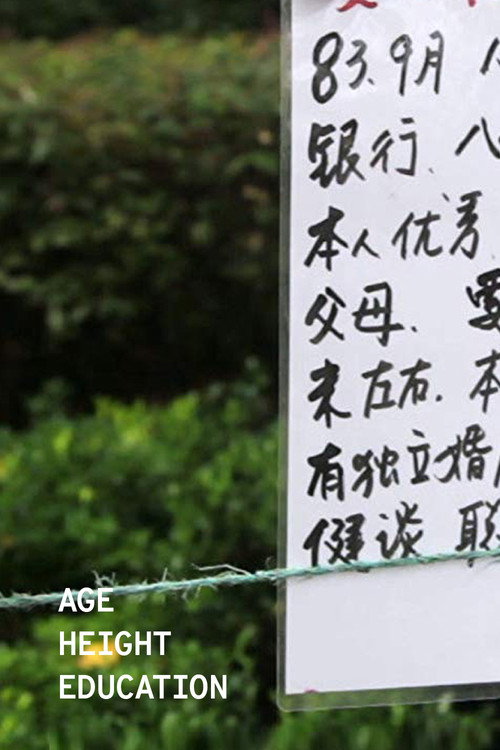 83.9月
银行. 八
本人优秀.
父母. 要
米左右. 本
有独立婚
健谈 联
AGE
HEIGHT
EDUCATION